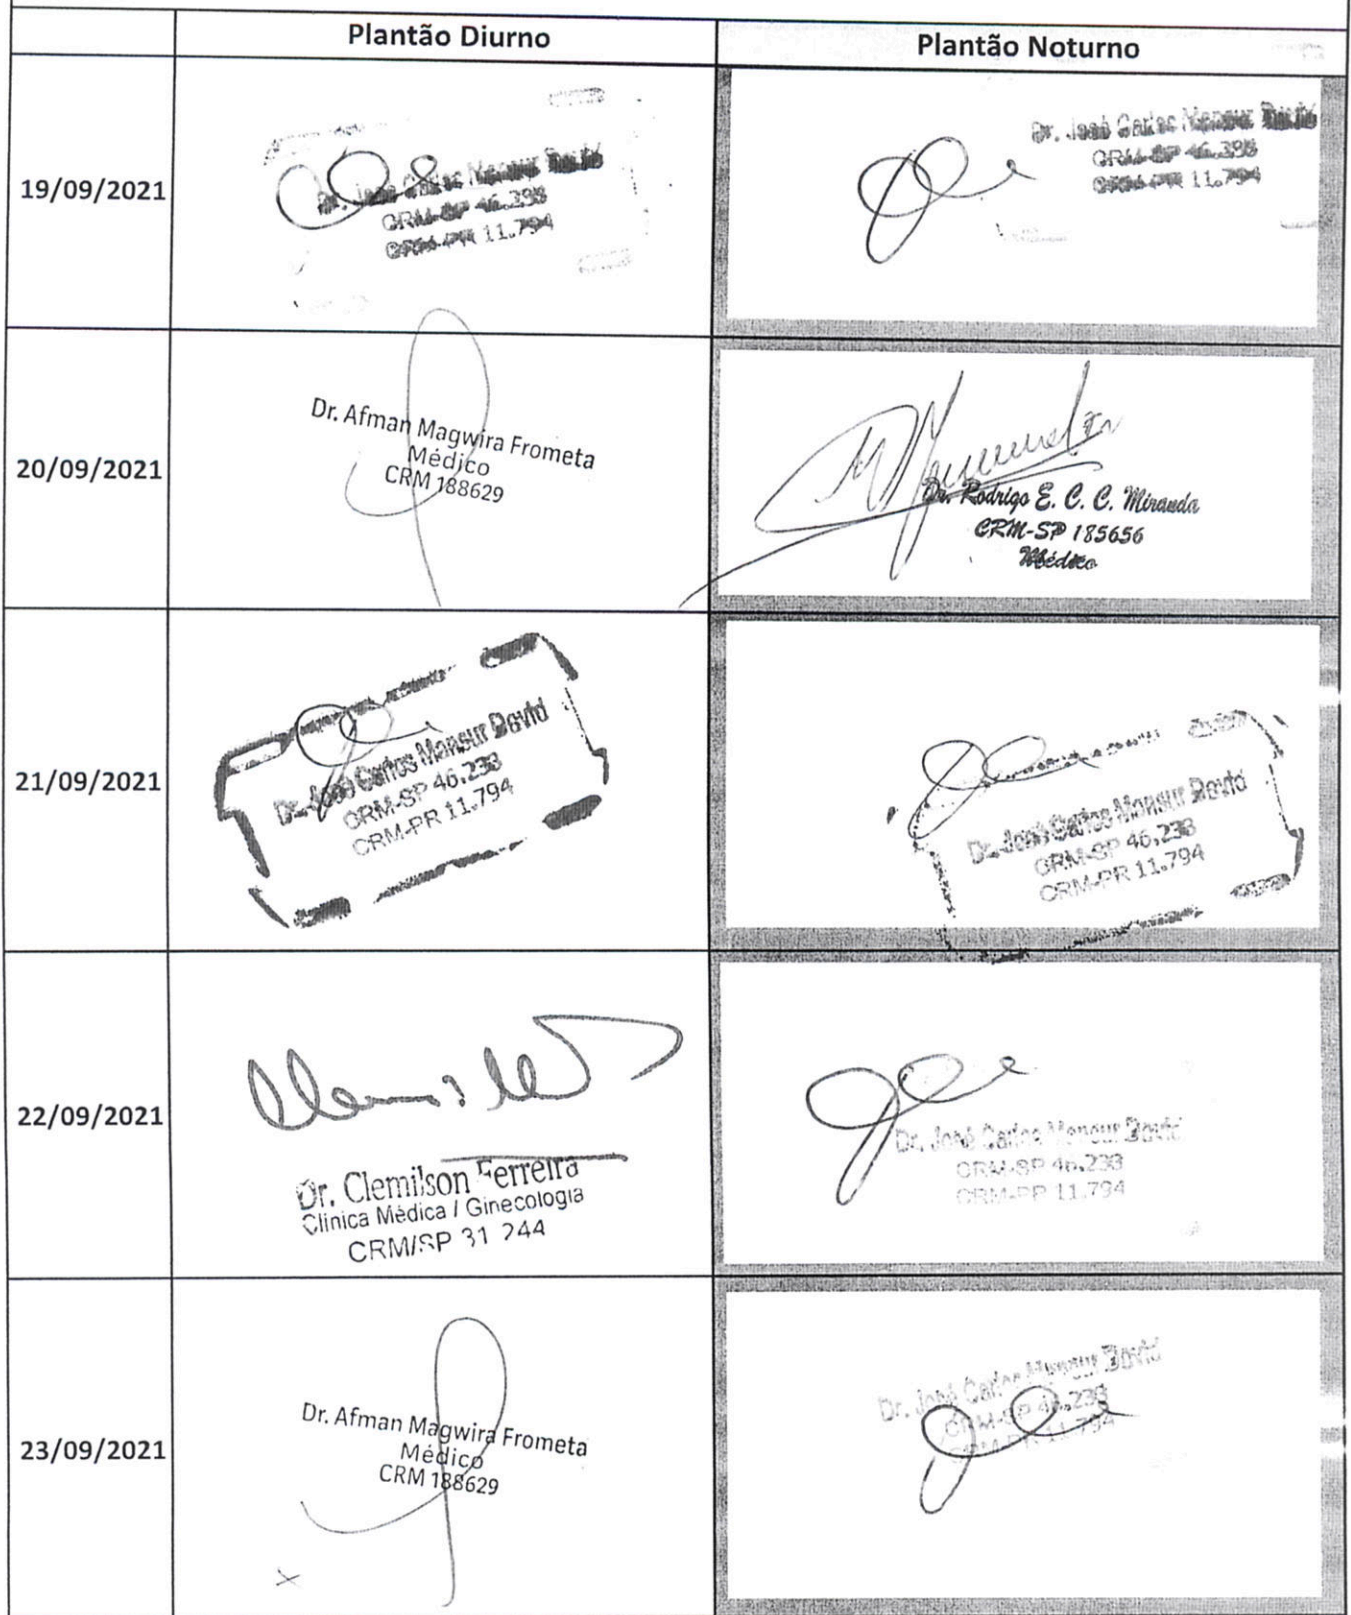 Plantão Diurno
Plantão Noturno
19/09/2021
Dr. José Carlos Mansur David
CRM-SP 46.238
CRM-PR 11.794
Dr. José Carlos Mansur David
CRM-SP 46.238
CRM-PR 11.794
20/09/2021
Dr. Afman Magwira Frometa
Médico
CRM 188629
Dr. Rodrigo E. C. C. Miranda
CRM-SP 185656
Médico
21/09/2021
Dr. José Carlos Mansur David
CRM-SP 46.238
CRM-PR 11.794
Dr. José Carlos Mansur David
CRM-SP 46.238
CRM-PR 11.794
22/09/2021
Dr. Clemilson Ferreira
Clínica Médica / Ginecologia
CRM/SP 31 244
Dr. José Carlos Mansur David
CRM-SP 46.238
CRM-PR 11.794
23/09/2021
Dr. Afman Magwira Frometa
Médico
CRM 188629
Dr. José Carlos Mansur David
CRM-SP 46.238
CRM-PR 11.794